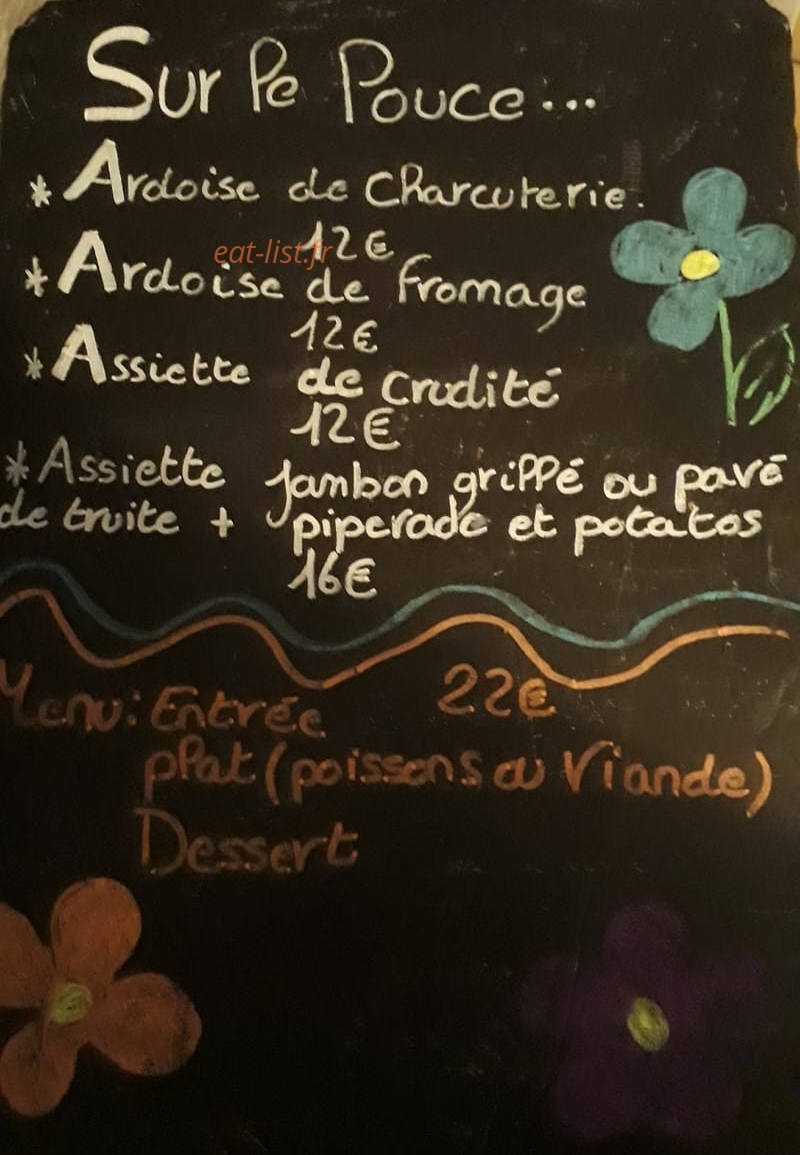 Sur le Pouce...
* Ardoise de Charcuterie.
12€
eat-list.fr
* Ardoise de fromage
12€
* Assiette de crudité
12€
* Assiette jambon grillé ou pavé
de truite + piperade et potatos
16€
Menu: Entrée 22€
plat (poissons ou Viande)
Dessert